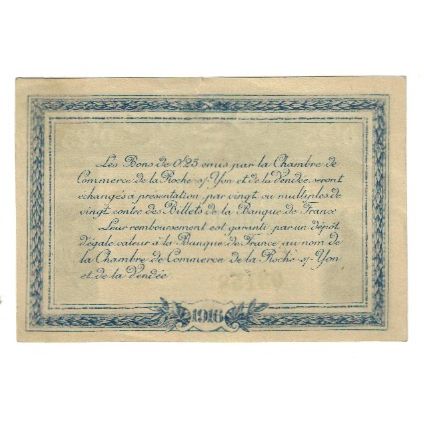 Les Bons de 0f25 émis par la Chambre de
Commerce de la Roche-s/-Yon et de la Vendée, seront
échangés à présentation, par vingt ou multiples de
vingt contre des Billets de la Banque de France
Leur remboursement est garanti par un dépôt
d'égale valeur à la Banque de France au nom de
la Chambre de Commerce de la Roche-s/-Yon
et de la Vendée
1916